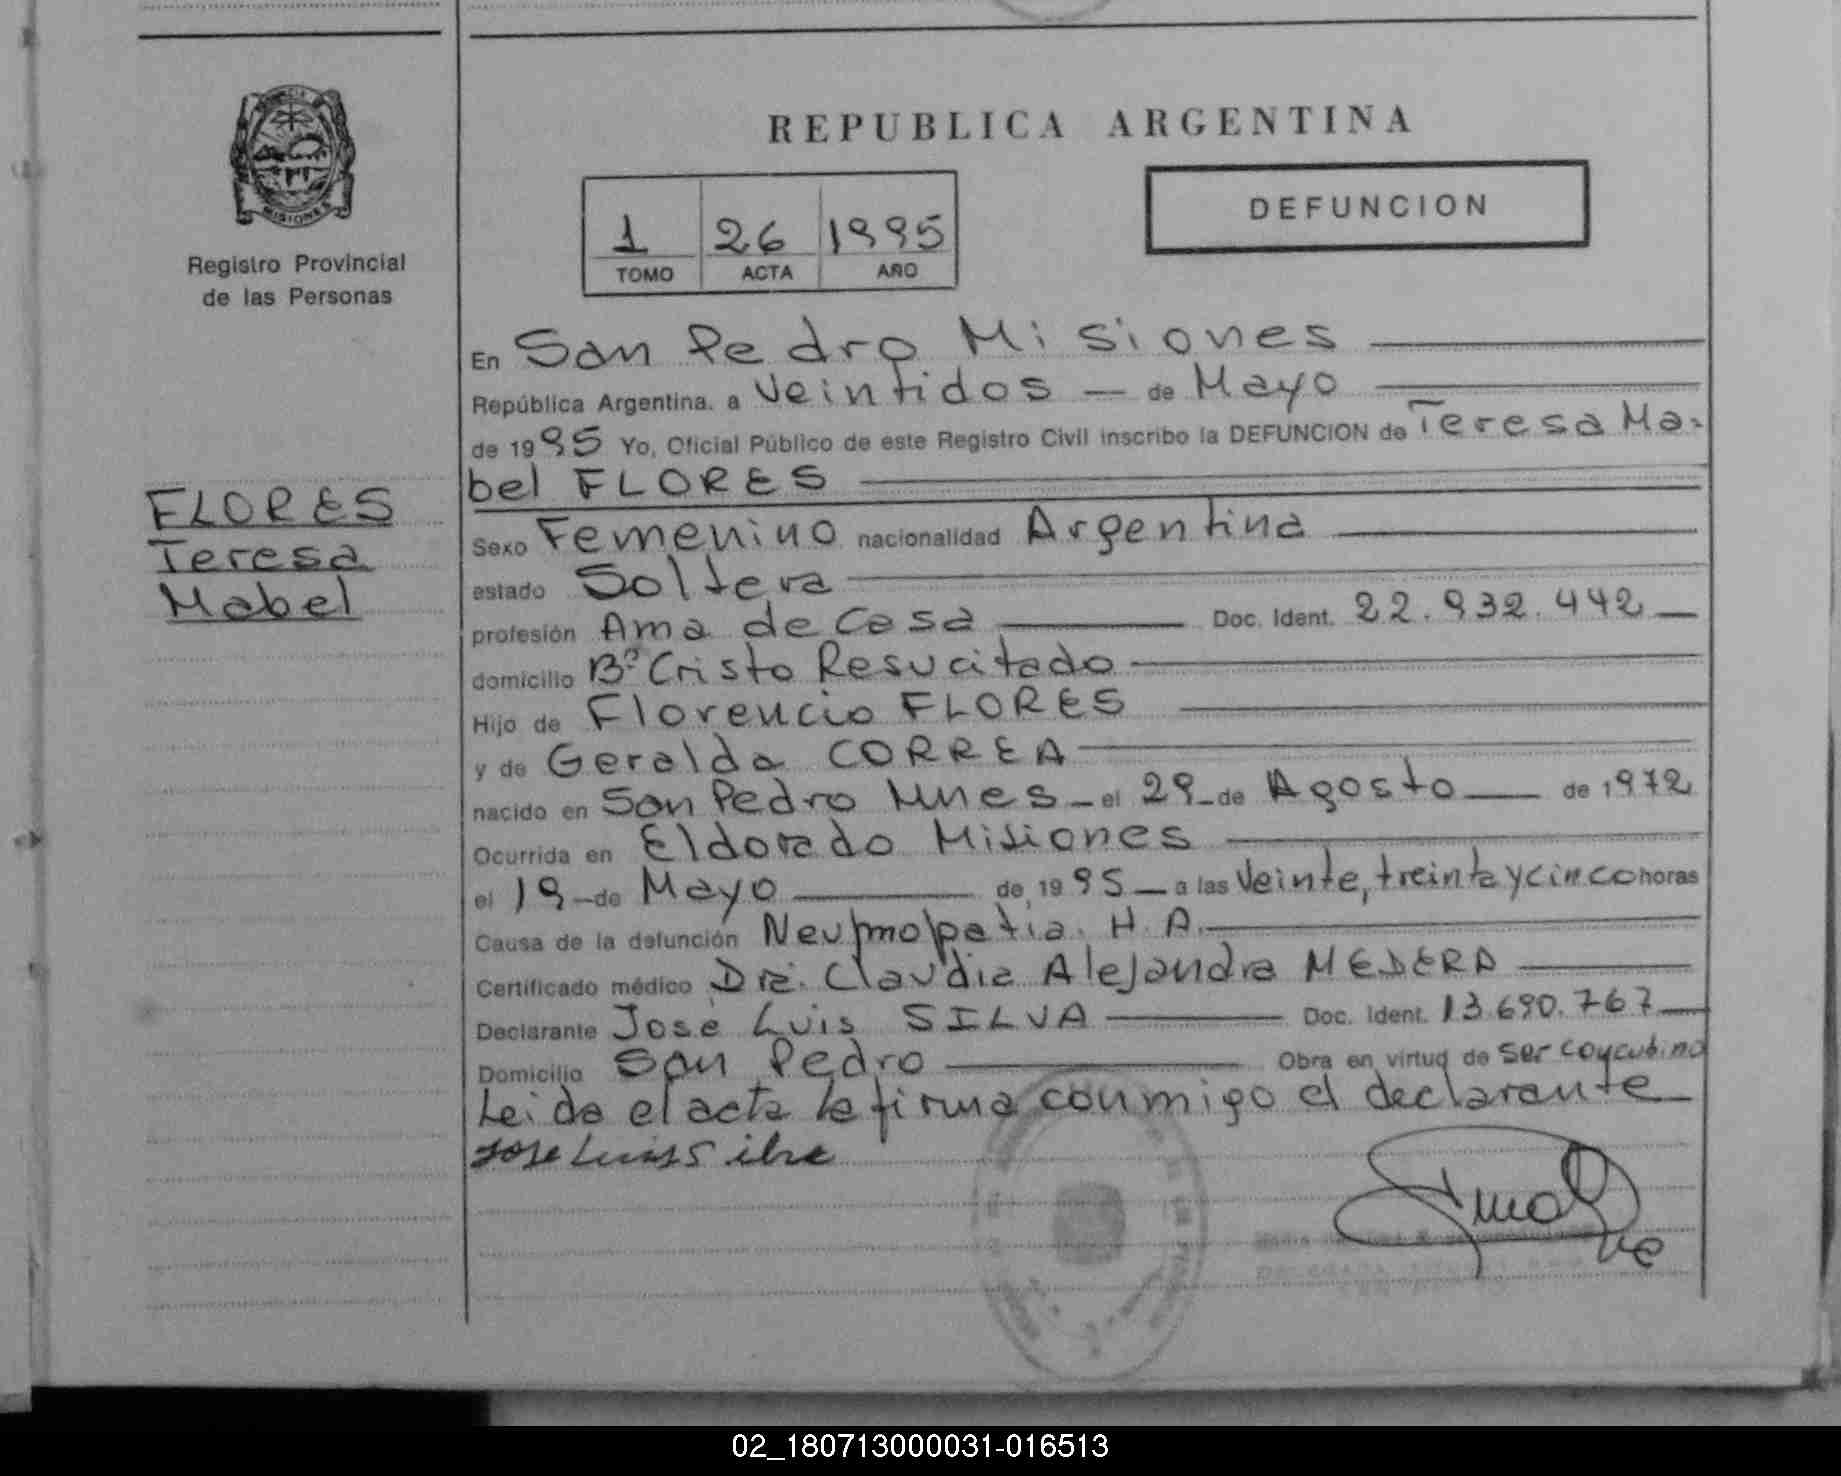 REPUBLICA ARGENTINA
DEFUNCION
1 26 1995
TOMO ACTA AÑO
MISIONES
Registro Provincial
de las Personas
FLORES
Teresa
Mabel
En San Pedro Misiones
República Argentina. a Veintidos — de Mayo
de 1995 Yo, Oficial Público de este Registro Civil inscribo la DEFUNCION de Teresa Ma-
bel FLORES
Sexo Femenino nacionalidad Argentina
estado Soltera
profesión Ama de Casa Doc. Ident. 22.932.442
domicilio Bº Cristo Resucitado
Hijo de Florencio FLORES
y de Geralda CORREA
nacido en San Pedro Mnes — el 29 — de Agosto — de 1972
Ocurrida en Eldorado Misiones
el 19 — de Mayo — de 1995 — a las Veinte, treinta y cinco horas
Causa de la defunción Neumopatia. H. A.
Certificado médico Dra. Claudia Alejandra MEDERA
Declarante José Luis SILVA Doc. Ident. 13.690.767
Domicilio San Pedro Obra en virtud de ser coycubino
Leida el acta la firma conmigo el declarante
Jose Luis Silva
02_180713000031-016513